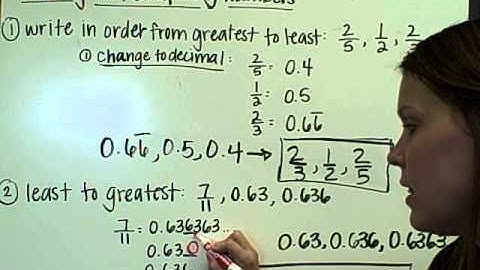 ① write in order from greatest to least: 2/5, 1/2, 2/3
① change to decimal: 2/5 = 0.4
1/2 = 0.5
2/3 = 0.66̅
0.66̅, 0.5, 0.4 → 2/3, 1/2, 2/5
② least to greatest: 7/11, 0.63, 0.636
7/11 = 0.636363..
0.630
0.63, 0.636, 0.636363
0.636